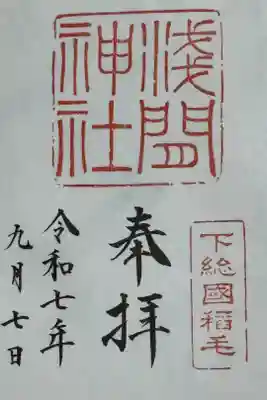 淺間
神社
下総國稲毛
奉拝
令和七年
九月七日